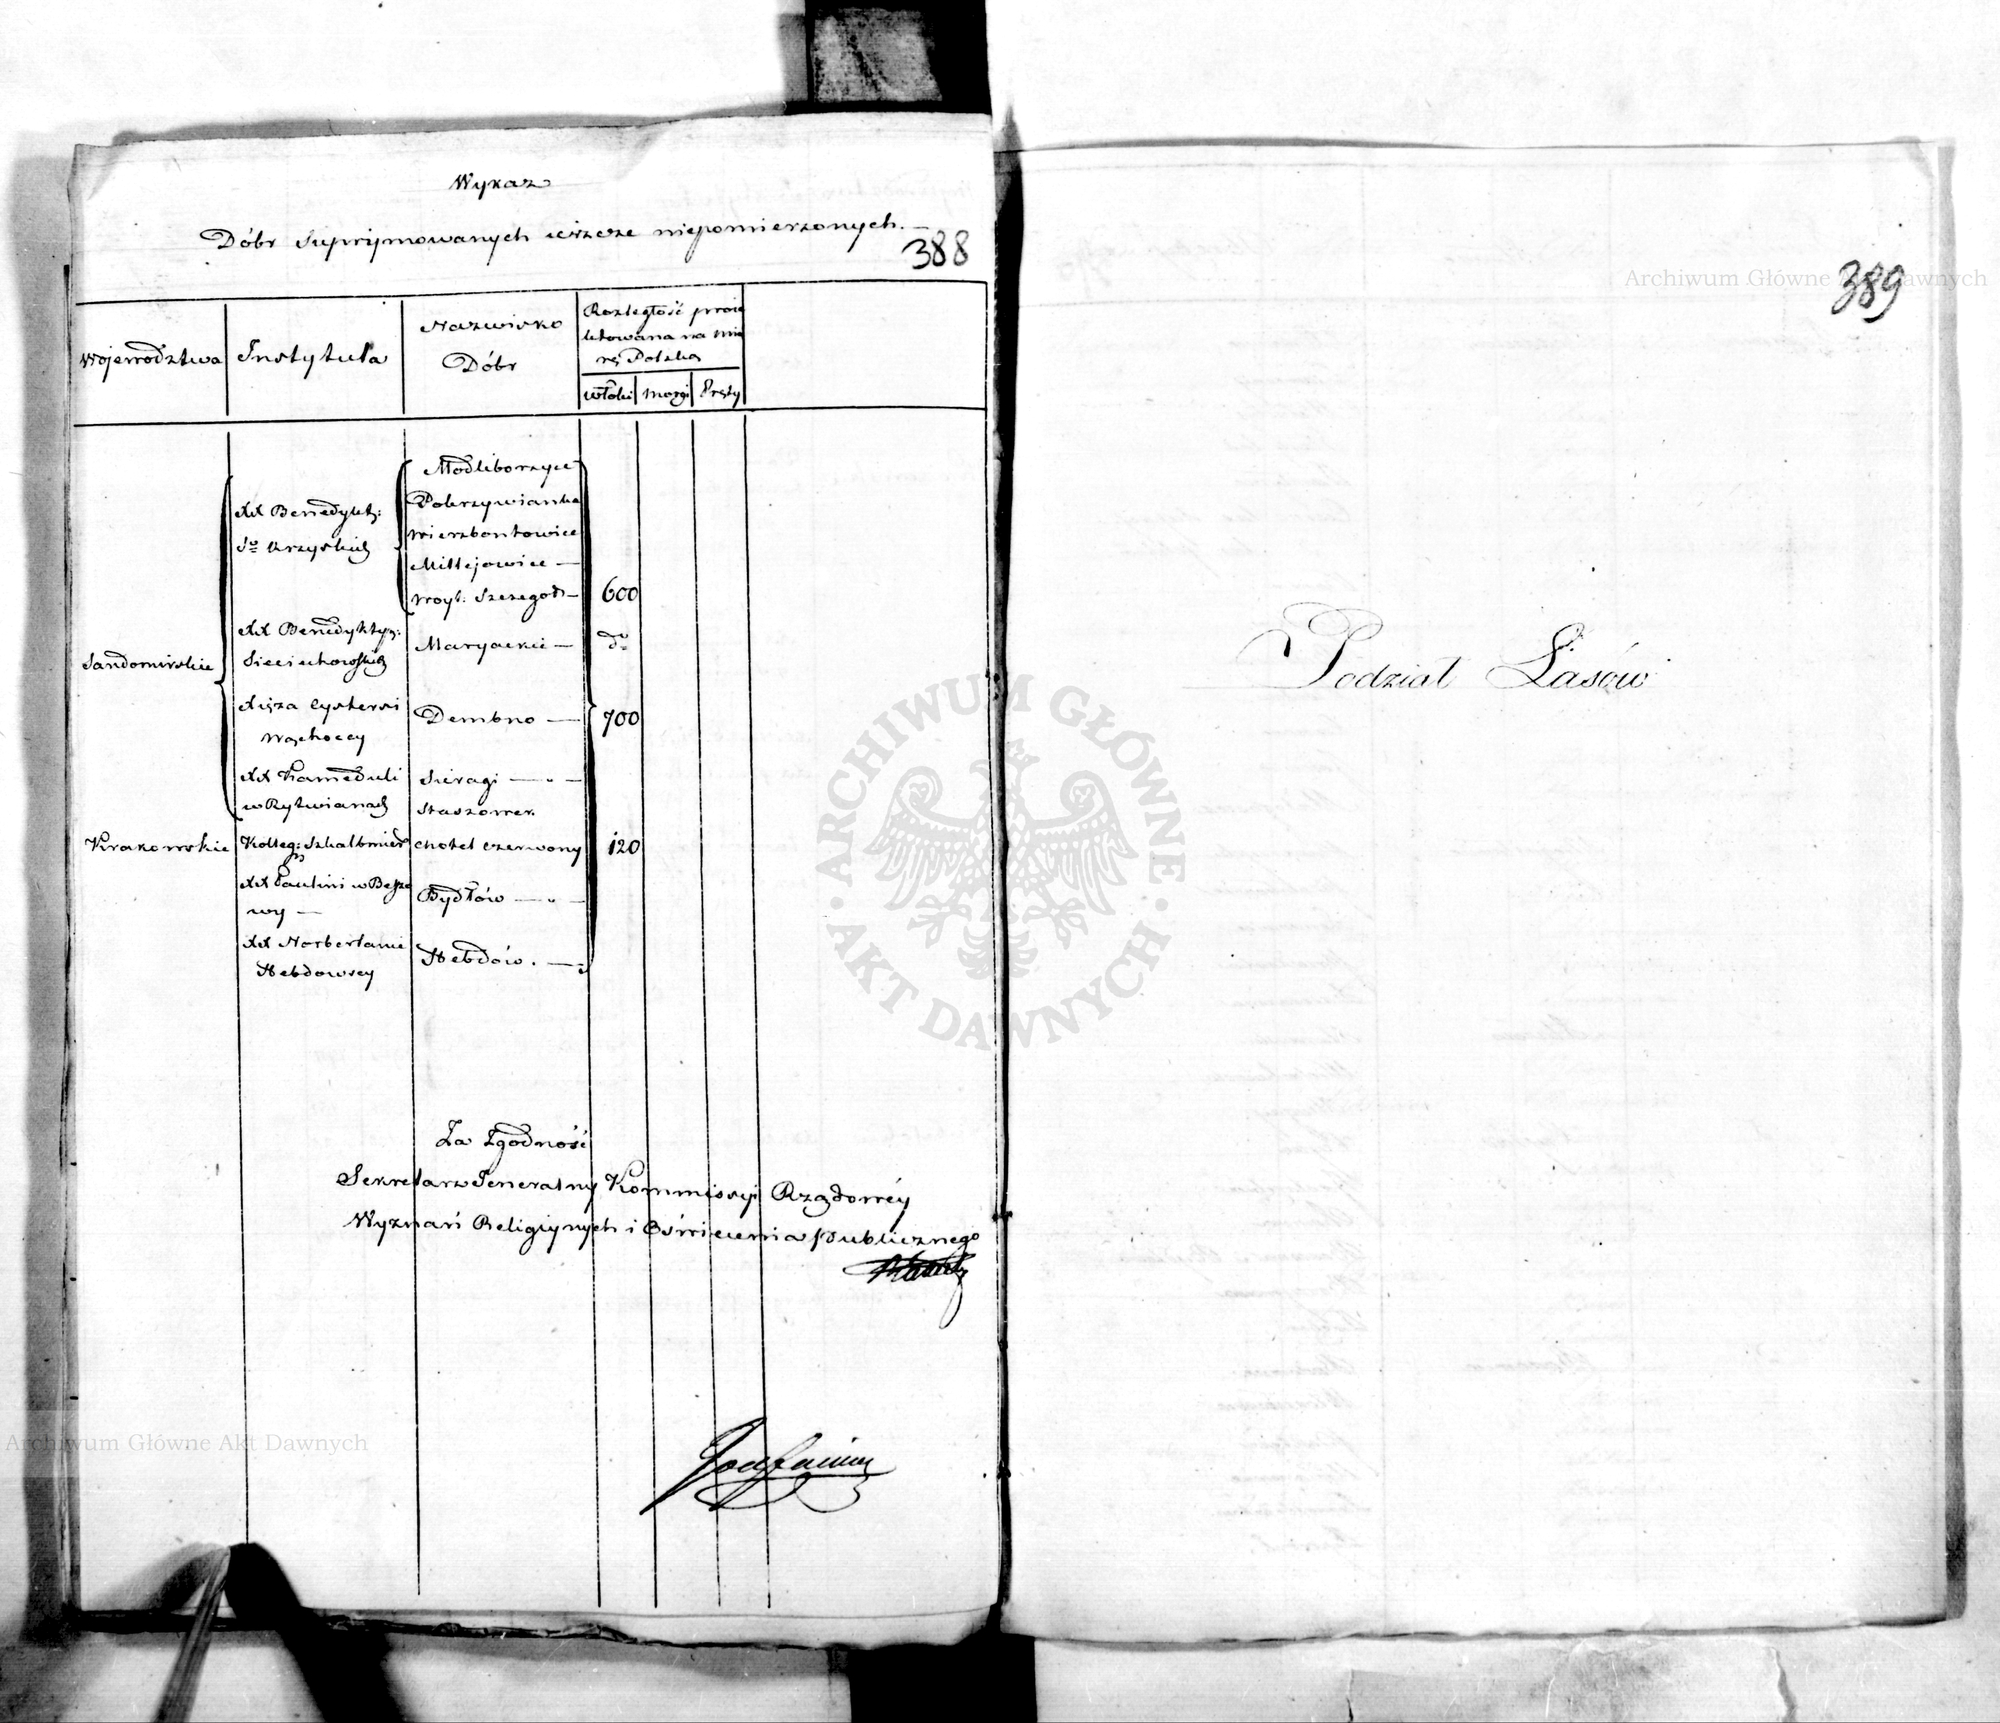 Wykaz
Dóbr supprymowanych ieszcze niepomierzonych. —
388
Województwa
Instytuta
Nazwisko
Dóbr
Rozległość proie
ktowana na mia
rę Polską
włoki morgi Pręty
Sandomirskie
XX Benedykt:
So Krzyskich
Modliborzyce
Pokrzywianka
Wierzbontowice
Millejowice —
Woyt: Szczegod —
600
XX Benedyktyn:
Sieciechowskich
Maryackie —
do
Xięża Cystersi
Wąchoccy
Dembno —
700
XX Kameduli
w Rytwianach
Sieragi — " —
Staszower.
Krakowskie
Kolleg: Szkalbmier
Chotel Czerwony
120
XX Paulini w Beszo
wy —
Bydłów — " —
XX Norbertanie
Hebdowscy
Hebdów. —
Za Zgodność
Sekretarz Jeneralny Kommissyi Rządowéy
Wyznań Religiynych i Oświecenia Publicznego
389
Podział Lasów
Archiwum Główne Akt Dawnych
ARCHIWUM GŁÓWNE
· AKT DAWNYCH ·
Archiwum Główne Akt Dawnych